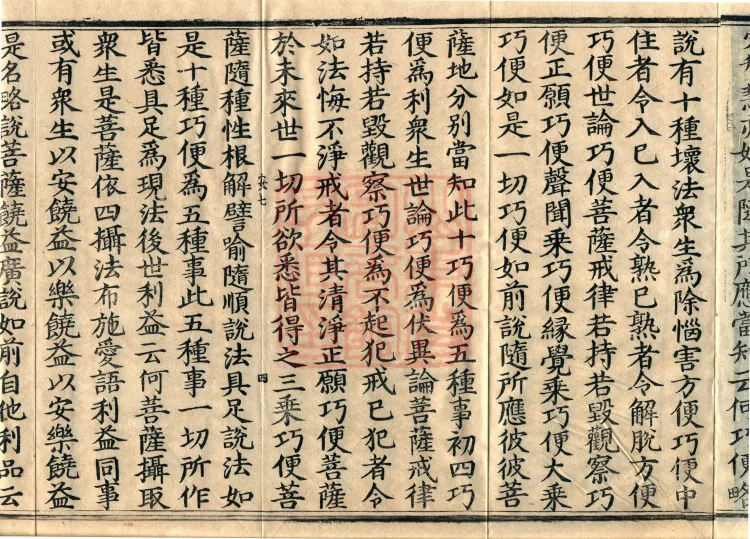 如是隨其所應當知云何巧便略
說有十種壞法衆生爲除惱害方便巧便中
住者令入已入者令熟已熟者令解脫方便
巧便世論巧便菩薩戒律若持若毀觀察巧
便正願巧便聲聞乘巧便緣覺乘巧便大乘
巧便如是一切巧便如前說隨所應彼彼菩
薩地分別當知此十巧便爲五種事初四巧
便爲利衆生世論巧便爲伏異論菩薩戒律
若持若毀觀察巧便爲不起犯戒已犯者令
如法悔不淨戒者令其清淨正願巧便菩薩
於未來世一切所欲悉皆得之三乘巧便菩
四
薩隨種性根解譬喻隨順說法具足說法如
是十種巧便爲五種事此五種事一切所作
皆悉具足爲現法後世利益云何菩薩攝取
衆生是菩薩依四攝法布施愛語利益同事
或有衆生以安饒益以樂饒益以安樂饒益
是名略說菩薩饒益廣說如前自他利品云